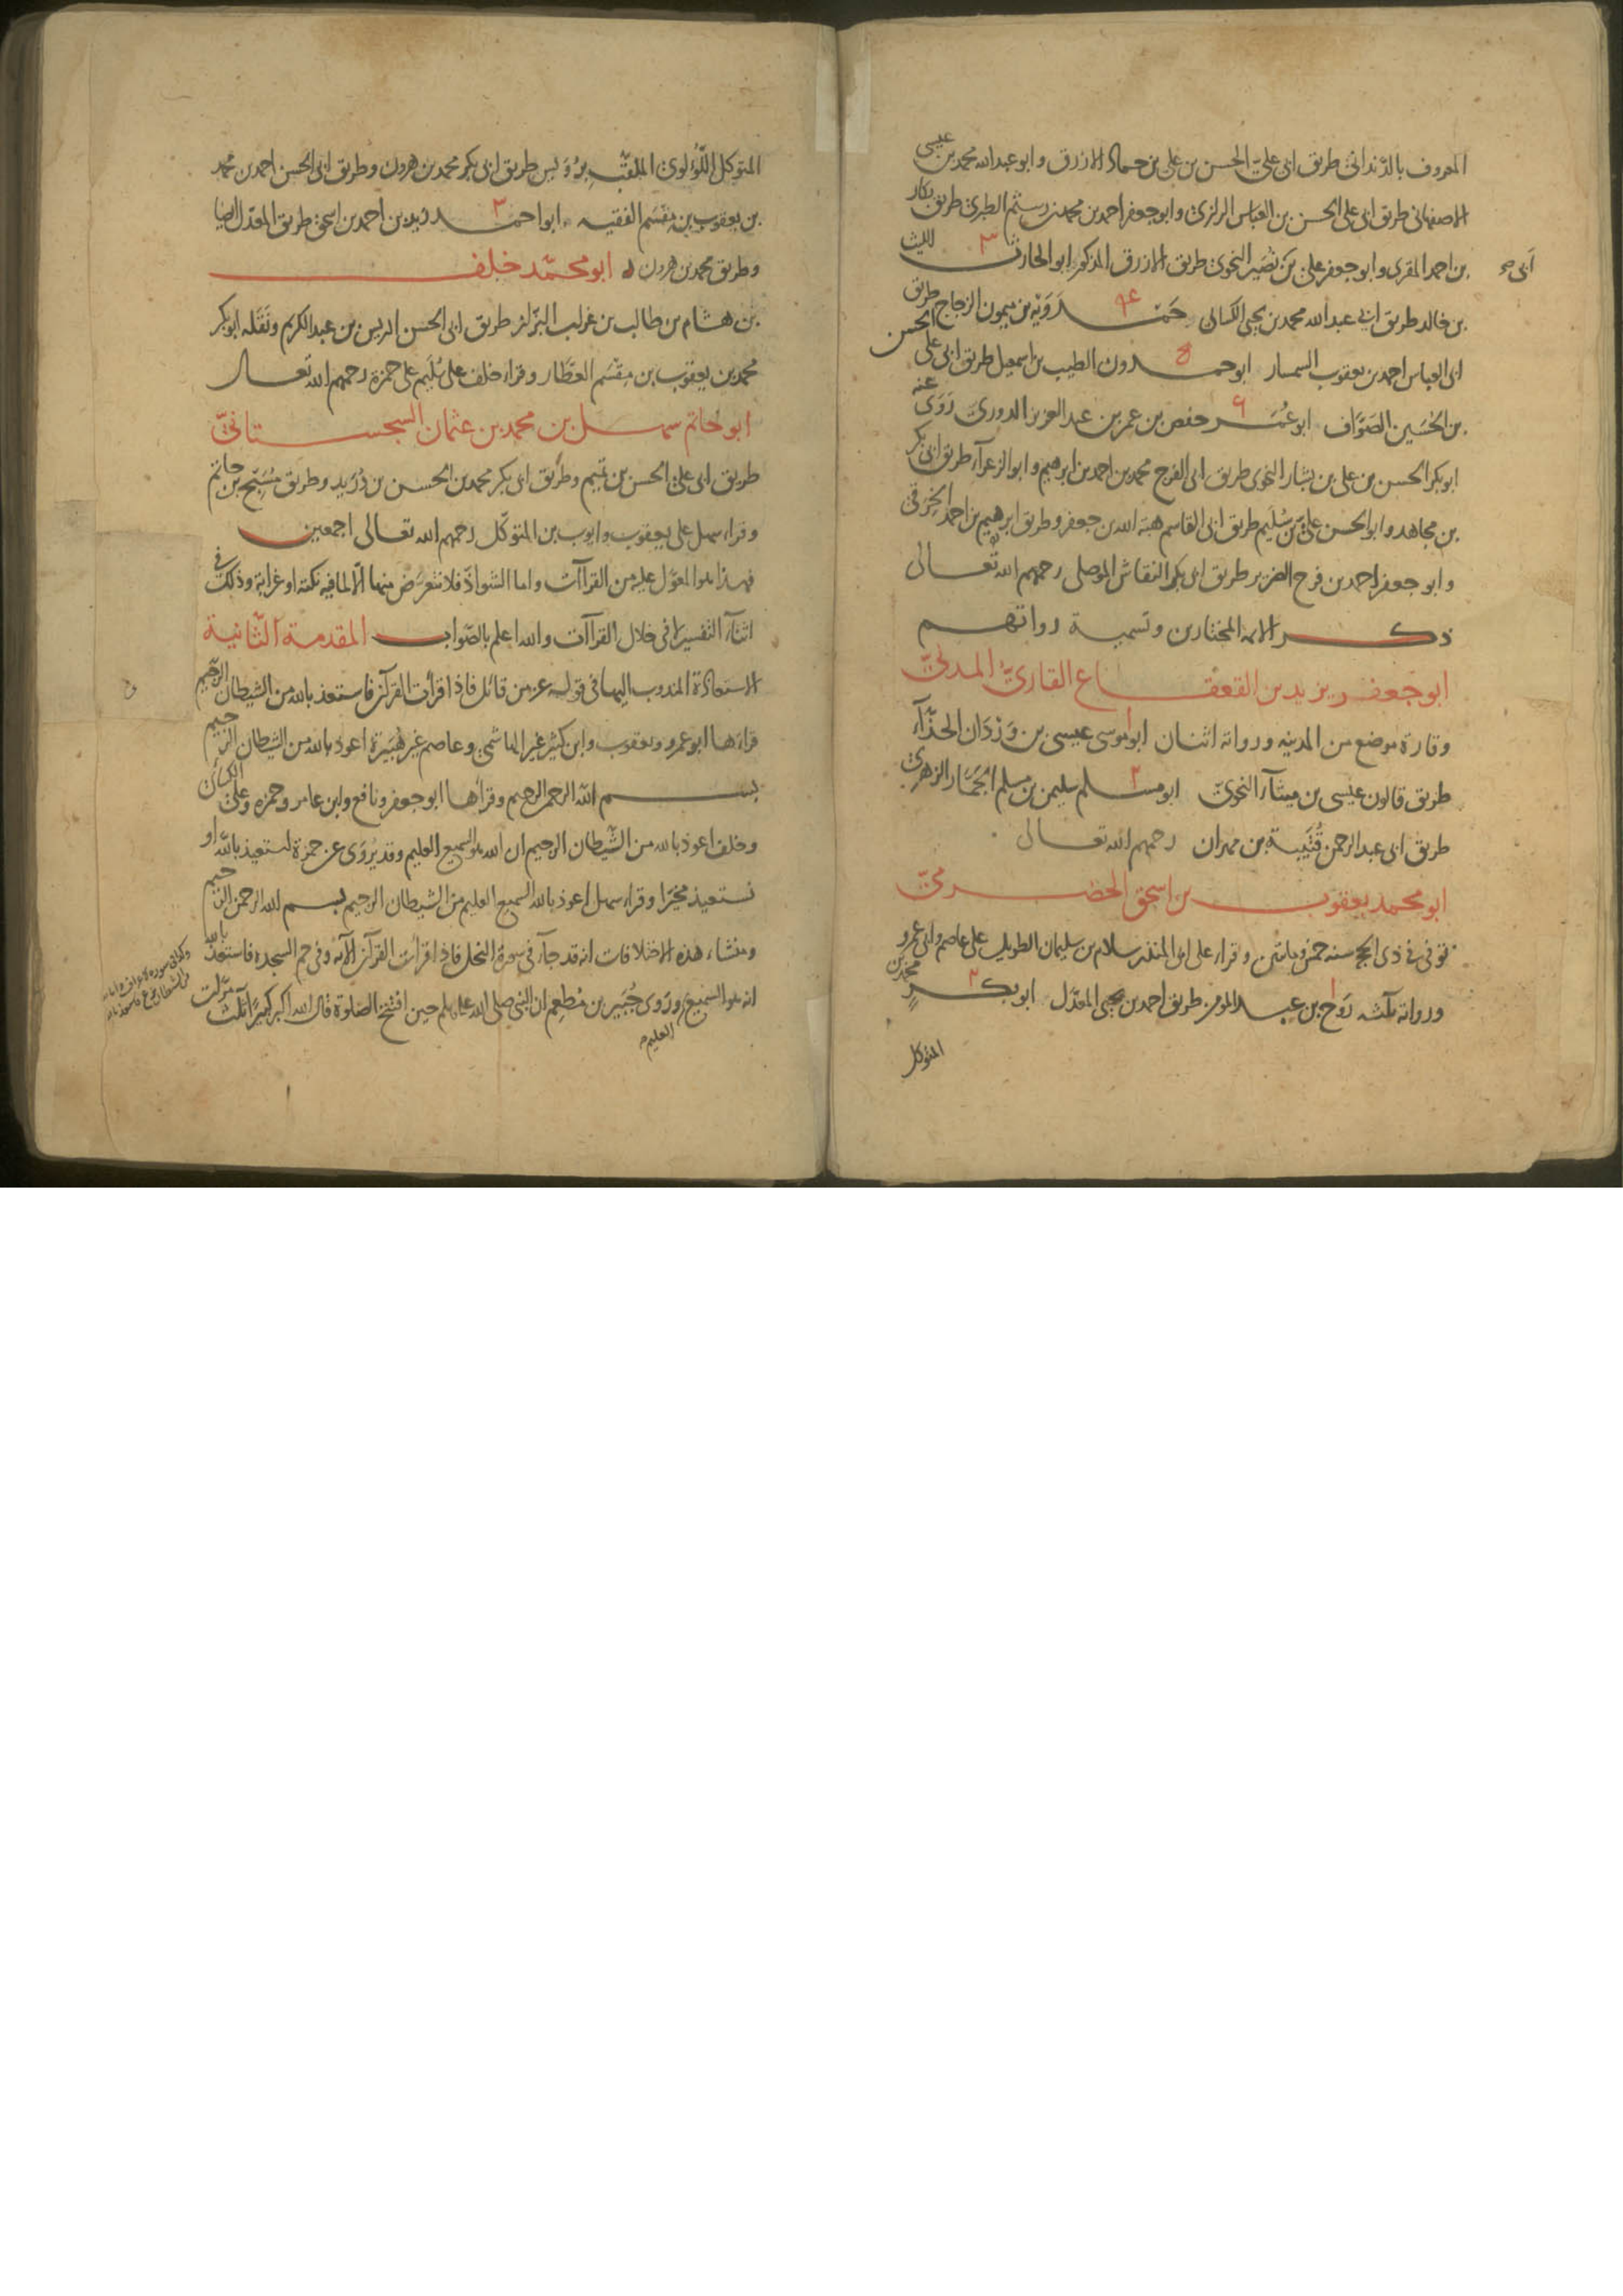 المعروف بالدندانى طريق ابى علىّ الحسن بن على بن حماد الازرق وابو عبد الله محمد بن عيسى
الاصفهانى طريق ابى على الحسن بن العباس الرازى وابو جعفر احمد بن محمد بن رستم الطبرى طريق بكار
بن احمد المقرى وابو جعفر على بن نُصَير النحوى طريق الازرق المذكور ابو الحارث ٣ الليث
بن خالد طريق ابى عبد الله محمد بن يحيى الكسائى حَمْدَوَيْه بن ميمون الزجاج طريق
ابى العباس احمد بن يعقوب السمسار ابو حمدون الطيب بن اسمعيل طريق ابى على الحسن
بن الحُسَين الصَوَّاف ابو عُمَر حفص بن عمر بن عبد العزيز الدورىّ رَوَى عنه
ابو بكر الحسن بن على بن بشار النحوى طريق ابى الفرج محمد بن احمد بن ابرهيم وابو الزعرآء طريق ابى بكر
بن مجاهد وابو الحسن علىّ بن سُلَيم طريق ابى القاسم هبة الله بن جعفر وطريق ابرهيم بن احمد الخِرَقى
وابو جعفر احمد بن فرح الضرير طريق ابى بكر النقاش الموصلى رحمهم الله تعالى
ذكر الائمة المختارين وتسمية رواتهم
ابو جعفر يزيد بن القعقاع القارىّ المدنىّ
وقارة موضع من المدينه ورواته اثنان ابو موسى عيسى بن وَرْدَان الحذّآء
طريق قالون عيسى بن ميناء النحوىّ ابو مسلم ٢ سليمن بن مسلم الجَمَّاز الزهرىّ
طريق ابى عبد الرحمن قُتَيبة بن مهران رحمهم الله تعالى
ابو محمد يعقوب بن اسحق الحضرمىّ
توفى فى ذى الحجه سنه خمس ومائتين وقراء على ابى المنذر سلام بن سليمان الطويل على عاصم وابى عمرو
ورواته ثلثه رَوح بن عبد المومن طريق احمد بن يحيى المعدّل ابو بكر ٢ محمد بن
المتوكل
المتوكل اللّؤلوى الملقّب برُوَيس طريق ابى بكر محمد بن هرون وطريق ابى الحسن احمد بن محمد
بن يعقوب بن مِقْسَم الفقيه ابو احمد ٣ زيد بن احمد بن اسحق طريق المعدّل ايضا
وطريق محمد بن هرون ابو محمّد خلف
بن هشام بن طالب بن غراب البزّاز طريق ابى الحسن ادريس بن عبد الكريم ونَقَله ابو بكر
محمد بن يعقوب بن مِقْسَم العطّار وقراء خلف على سُلَيم على حمزة رحمهم الله تعالى
ابو حاتم سهل بن محمد بن عثمان السجستانىّ
طريق ابى على الحسن بن تميم وطريق ابى بكر محمد بن الحسن بن دُرَيد وطريق مُسَبّح بن حاتم
وقراء سهل على يعقوب وايوب بن المتوكّل رحمهم الله تعالى اجمعين
فهذا هو المعوّل عليه من القراآت واما الشواذّ فلا نتعرّض منها الّا لما فيه نكتة او غرابة وذلك فى
اثناء التفسير لا فى خلال القراآت والله اعلم بالصّواب المقدمة الثّانية
الاستعاذة المندوب اليها فى قوله عز من قائل فاذا قرأت القرآن فاستعذ بالله من الشيطان الرّجيم
قراءها ابو عمرو ويعقوب وابن كثير غير الهاشمى وعاصم غير هُبَيرة اعوذ بالله من الشيطان الرجيم
بسم الله الرحمن الرحيم وقرأها ابو جعفر ونافع وابن عامر وحمزه وعلى الكسائى
وخلف اعوذ بالله من الشّيطان الرجيم ان الله هو السميع العليم وقد يُروَى عن حمزة استعيذ بالله او
نستعيذ مخيّرا وقراء سهل اعوذ بالله السميع العليم من الشيطان الرجيم بسم الله الرحمن الرحيم
ومنشاء هذه الاختلافات انه قد جآء فى سورة النحل فاذا قرأت القرآن الآيه وفى حم السجده فاستعذ بالله
انه هو السميع ورَوى جُبَير بن مُطعِم ان النبى صلى الله عليه وسلم حين افتتح الصلوة قال الله اكبر كبيرًا ثلث مرّات
العليم